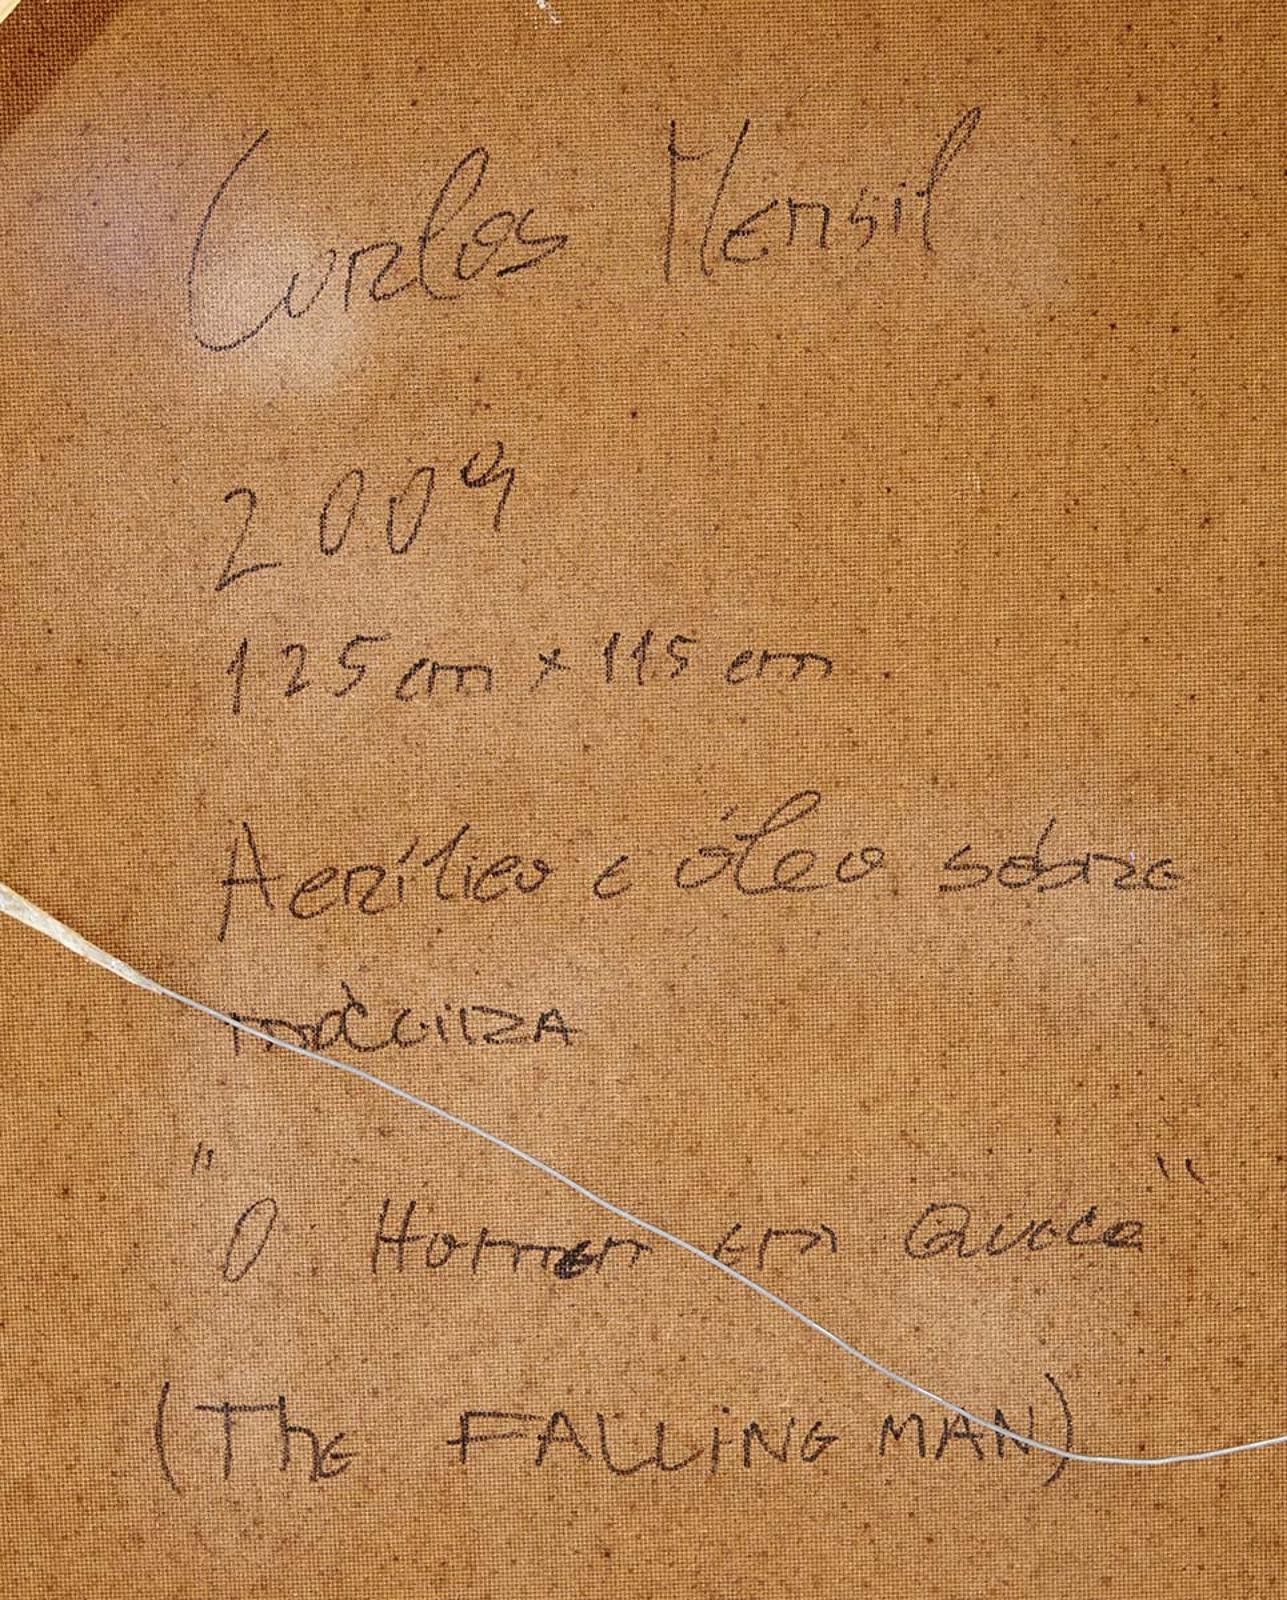 Carlos Mensil
2009
125 cm x 115 cm
Acrílico e óleo sobre
madeira
"O Homem em Queda"
(The FALLiNG MAN)